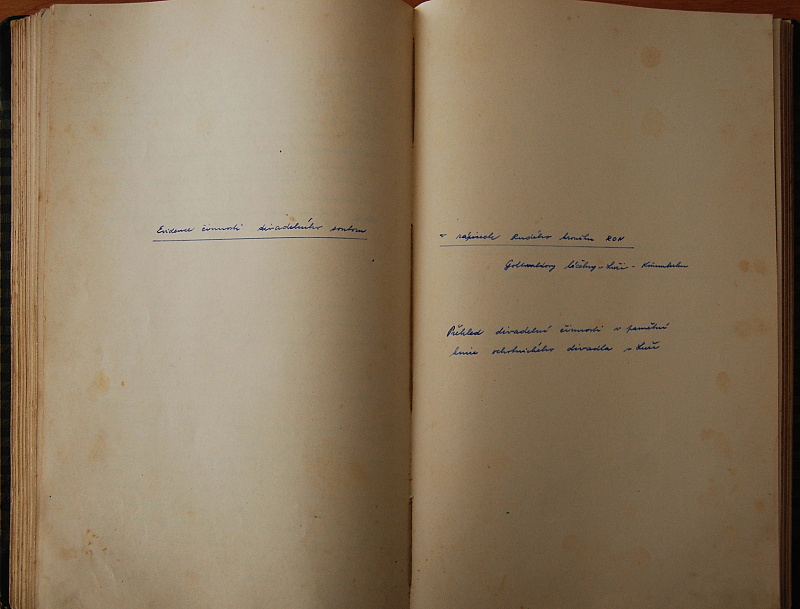 Evidence činnosti divadelního souboru
v zápisech Rudého koutku ROH
Gottwaldovy léčebny - Luže - Košumberku
Přehled divadelní činnosti v pamětní
knize ochotnického divadla v Luži